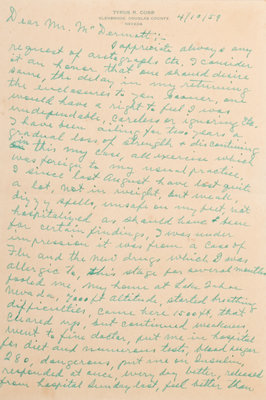 TYRUS R. COBB
GLENBROOK, DOUGLAS COUNTY,
NEVADA
4/10/59
Dear Mr. McDermott:-
I appreciate always any
request of autographs etc, I consider
it an honor, that one should desire
same, the delay in my returning
the enclosures to you sooner, one
would have a right to feel I was
undependable, careless or ignoring etc.
I have been ailing for two years a
gradual loss of strength + discontinuing
in this my case, all exercise which
was foreign to my usual practice,
I since last August have lost quite
a lot, not in weight, but weak,
dizzy spells, unsafe on my feet, not
hospitalized as should have been
for certain findings, I was under
impression it was from a case of
Flu and the new drugs which I was
allergic to, this stage for several months
fooled me, my home at Lake Tahoe
Nevada, 7000 ft altitude, started breathing
difficulties, came here 1500 ft, that
cleared up, but continued weakness,
went to fine doctor, put me in hospital
for diet and numerous tests, blood sugar
280, dangerous, put me on Insulin,
responded at once, every day better, released
from hospital Sunday last, feel better than